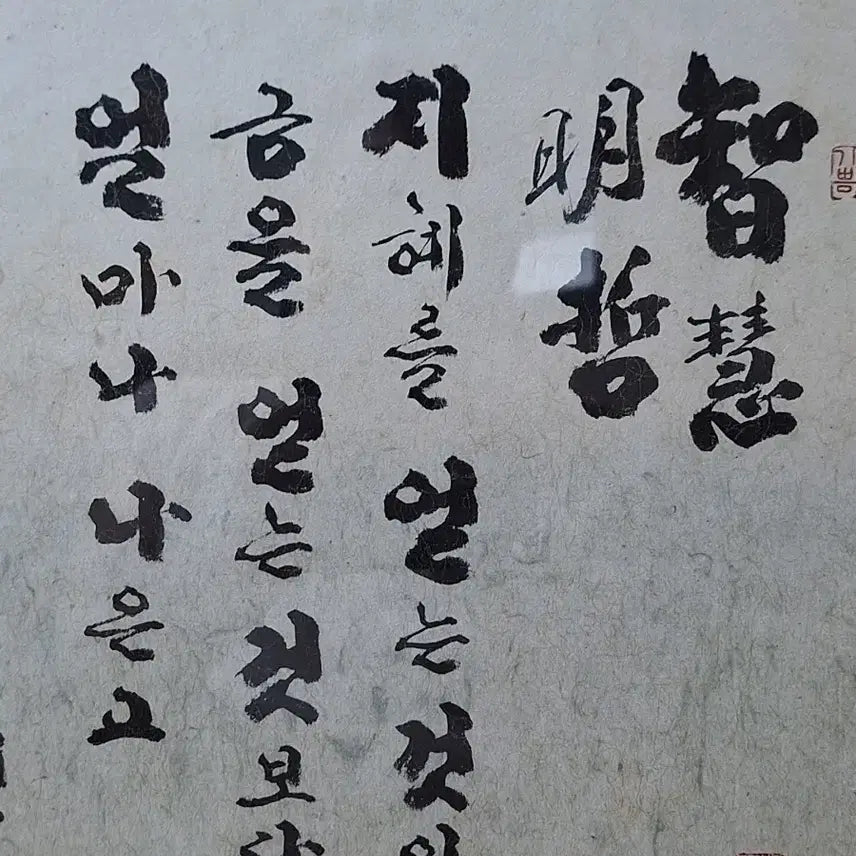 智慧
明哲
지혜를 얻는 것
금을 얻는 것보다
얼마나 나은고